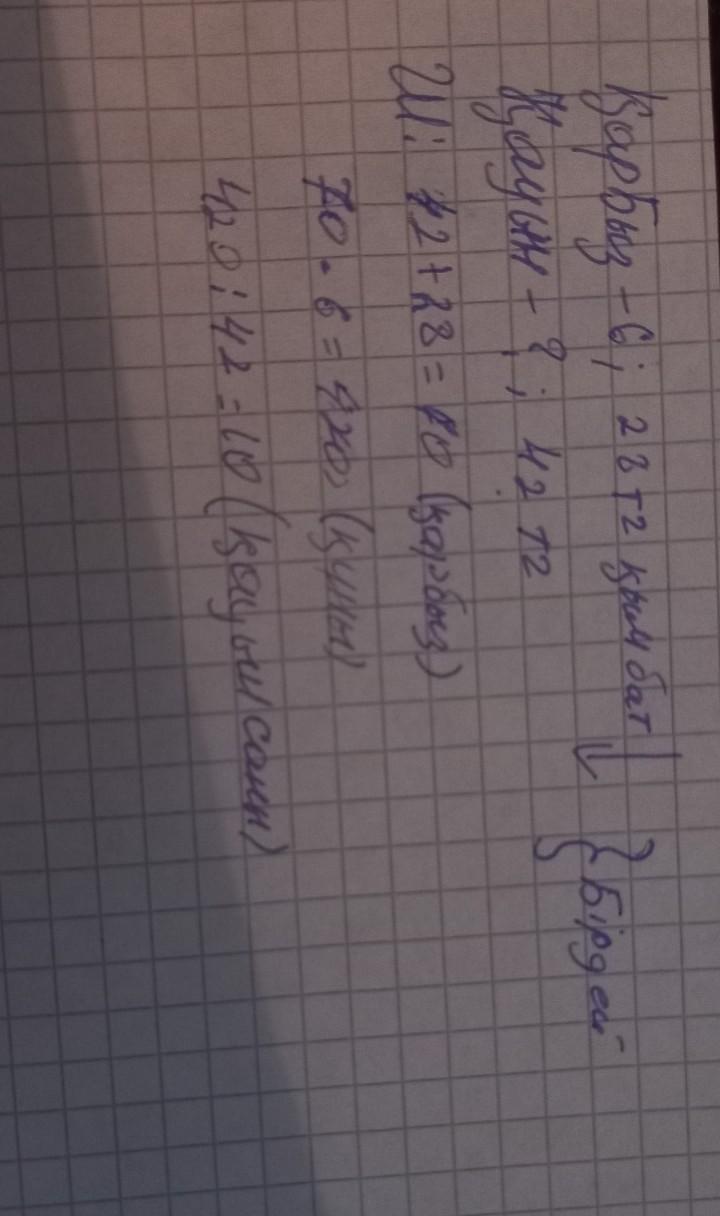 Қарбыз - 6; 28 тг қымбат } Бірдей
Қауын - ?; 42 тг
Ш: 42+28=70 (қарбыз)
70·6=420 (құны)
420:42=10 (қауын саны)